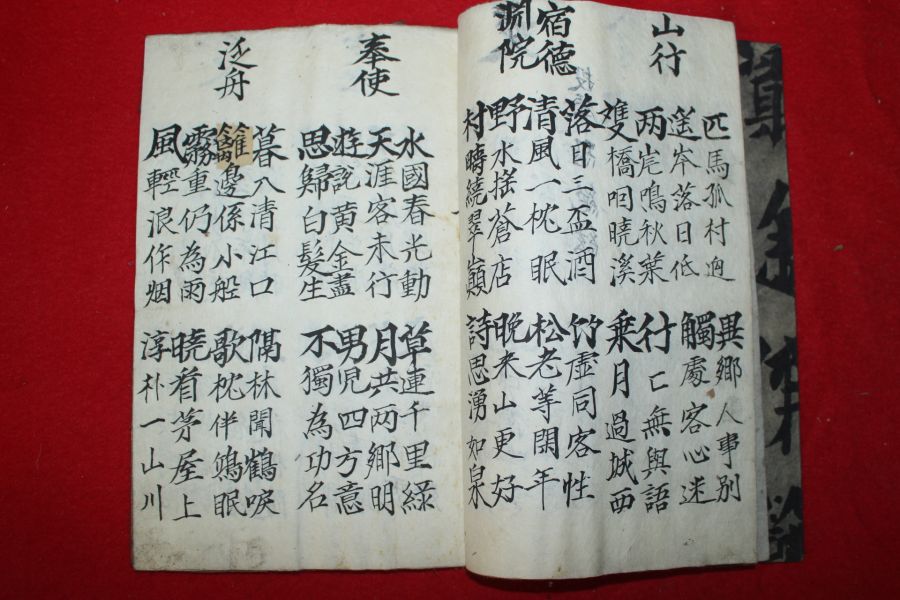 山行
匹馬孤村逈 異鄉人事別
遥岸落日低 觸處客心迷
两岸鳴秋葉 行〻無與語
雙橋咽曉溪 乘月過城西
宿德
渊院
落日三盃酒 竹虛同客性
清風一枕眠 松老等閑年
野水搖蒼店 晚来山更好
村疇繞翠巓 詩思湧如泉
奉使
水國春光動 草連千里綠
天涯客未行 月共两鄉明
遊說黃金盡 男児四方意
思歸白髮生 不獨為功名
泛舟
暮入清江口 隔林聞鶴唳
籬邊係小舩 歌枕伴鴻眠
霧重仍為雨 曉看茅屋上
風輕浪作烟 淳朴一山川